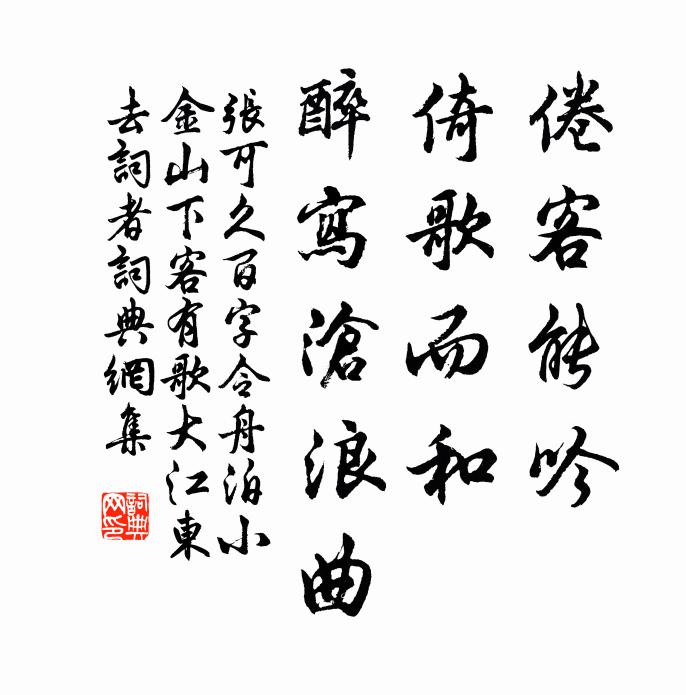 倦客能吟
倚歌而和
醉寫滄浪曲
張可久百字令舟泊小
金山下客有歌大江東
去詞者詞典網集
詞典
网印